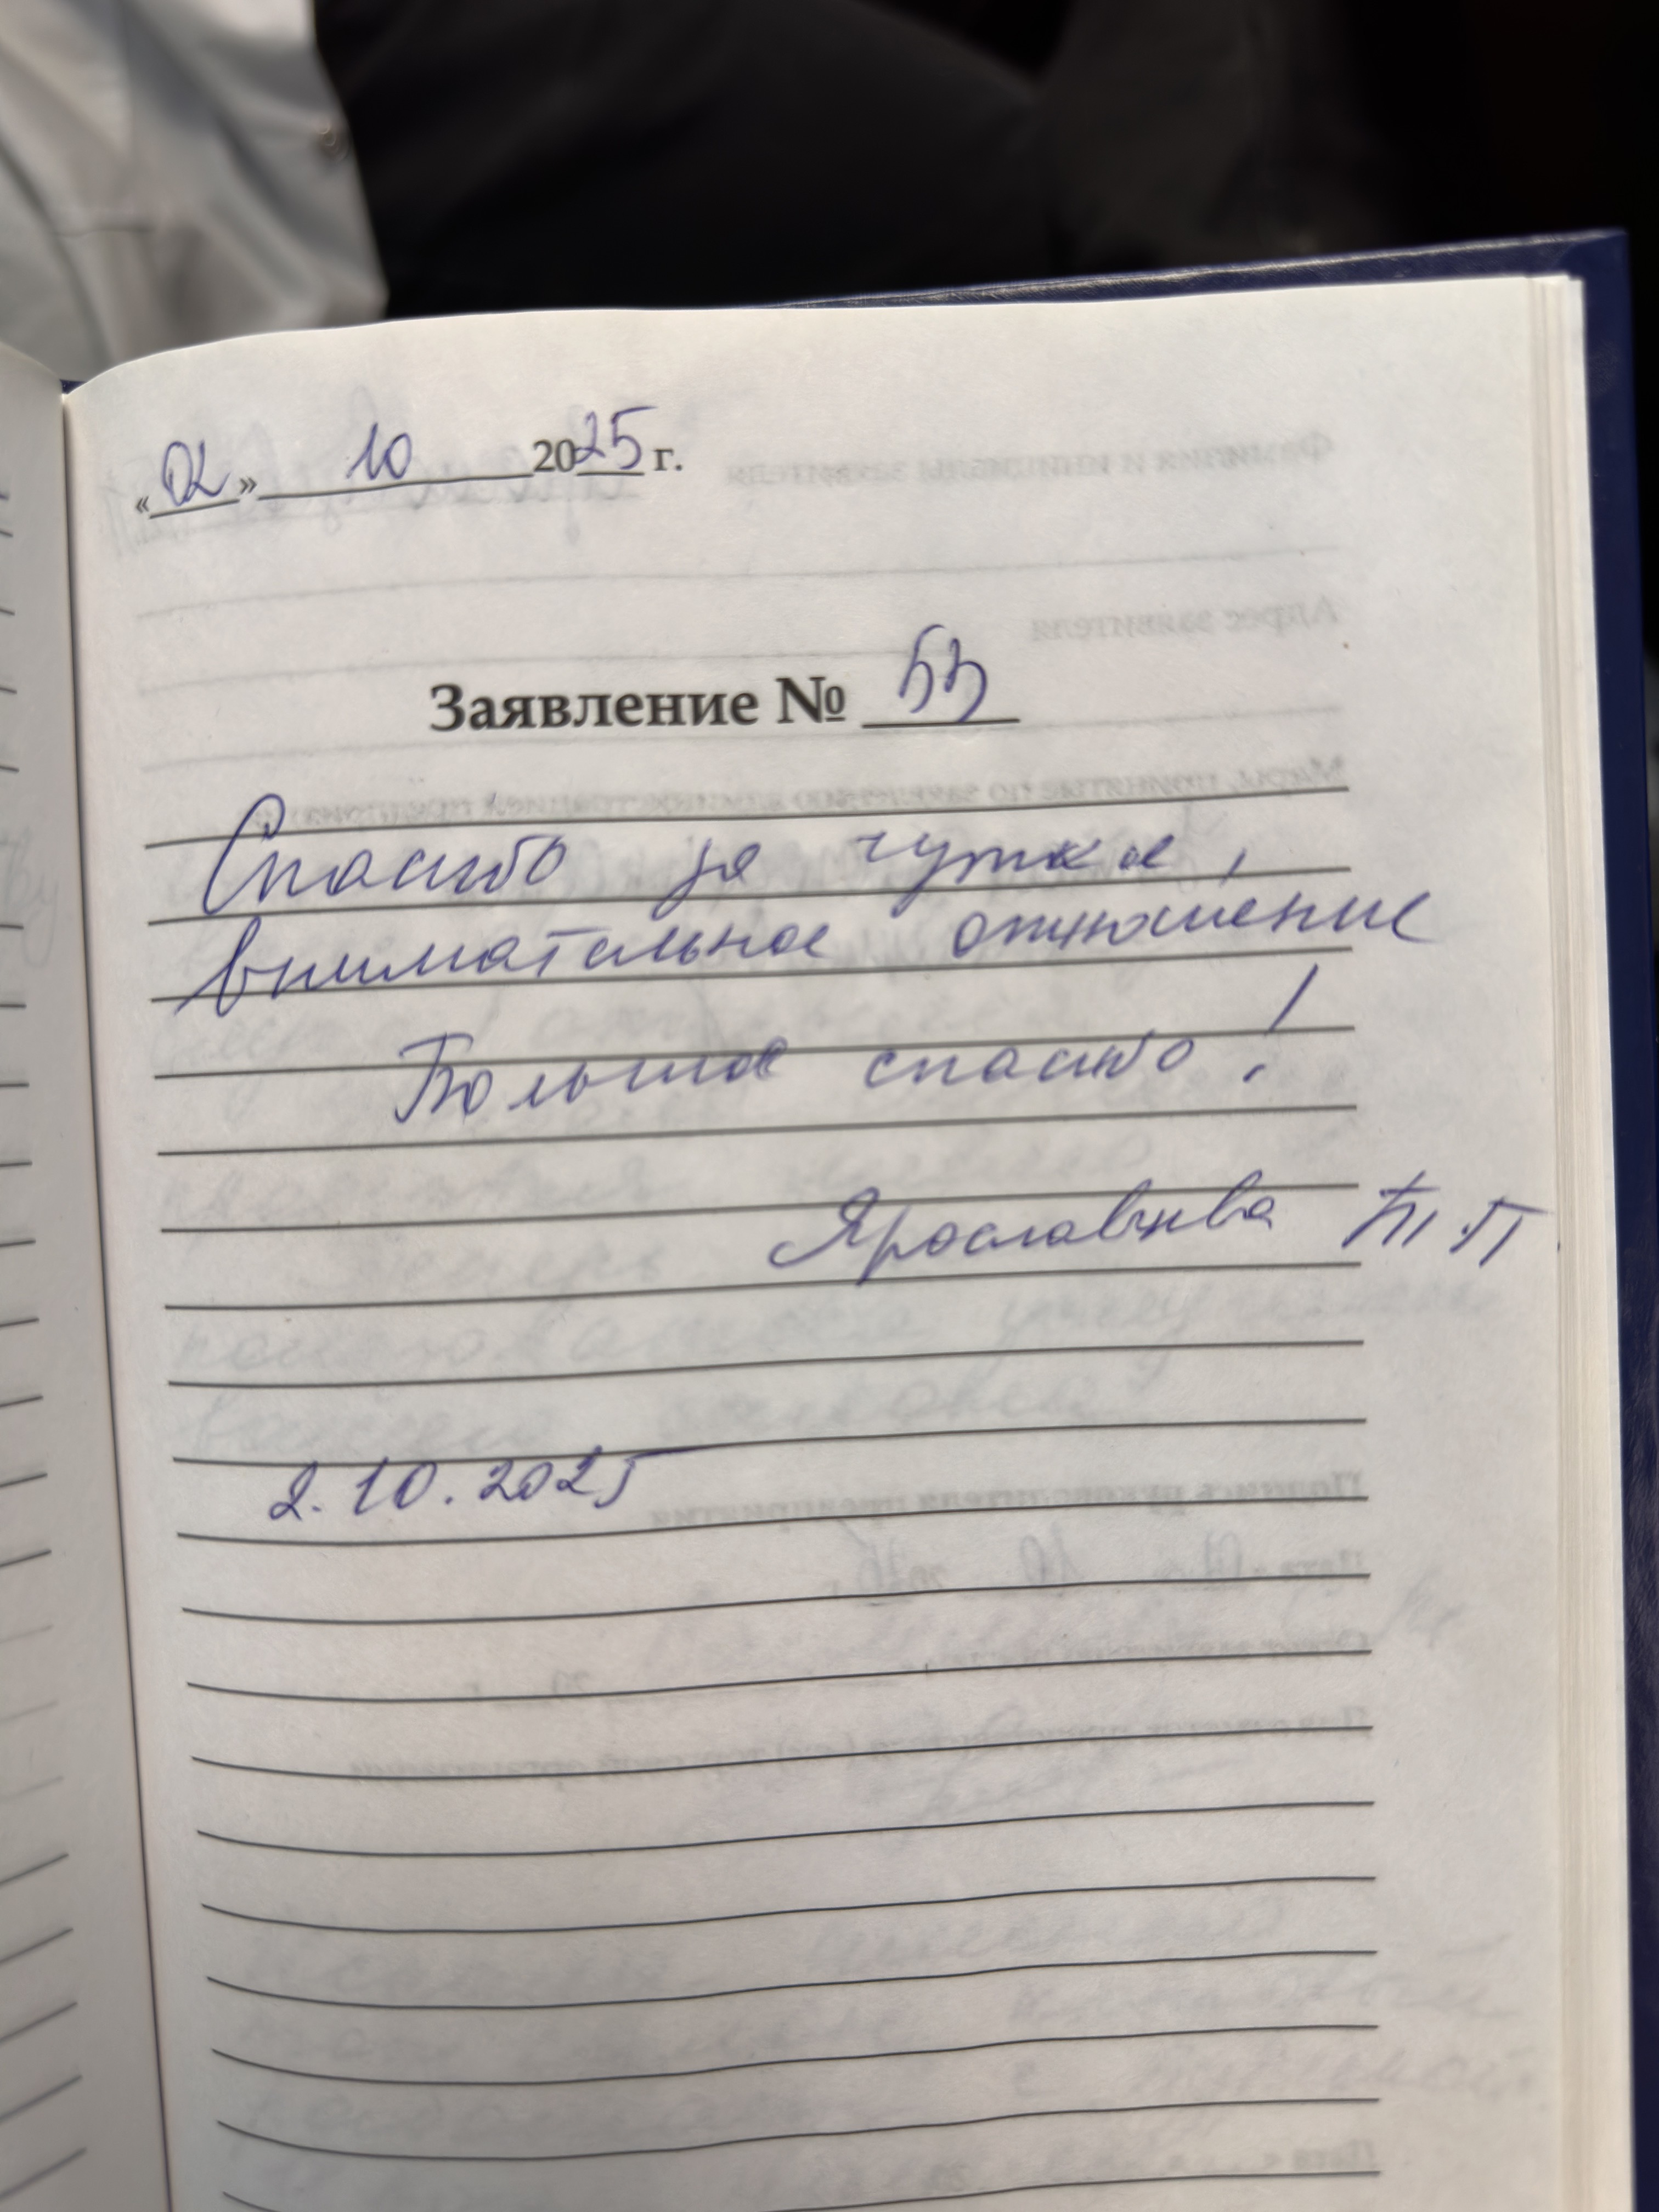 «02» 10 2025 г.
Заявление № 53
Спасибо за чуткое,
внимательное отношение
Большое спасибо!
Ярославцева
2.10.2025